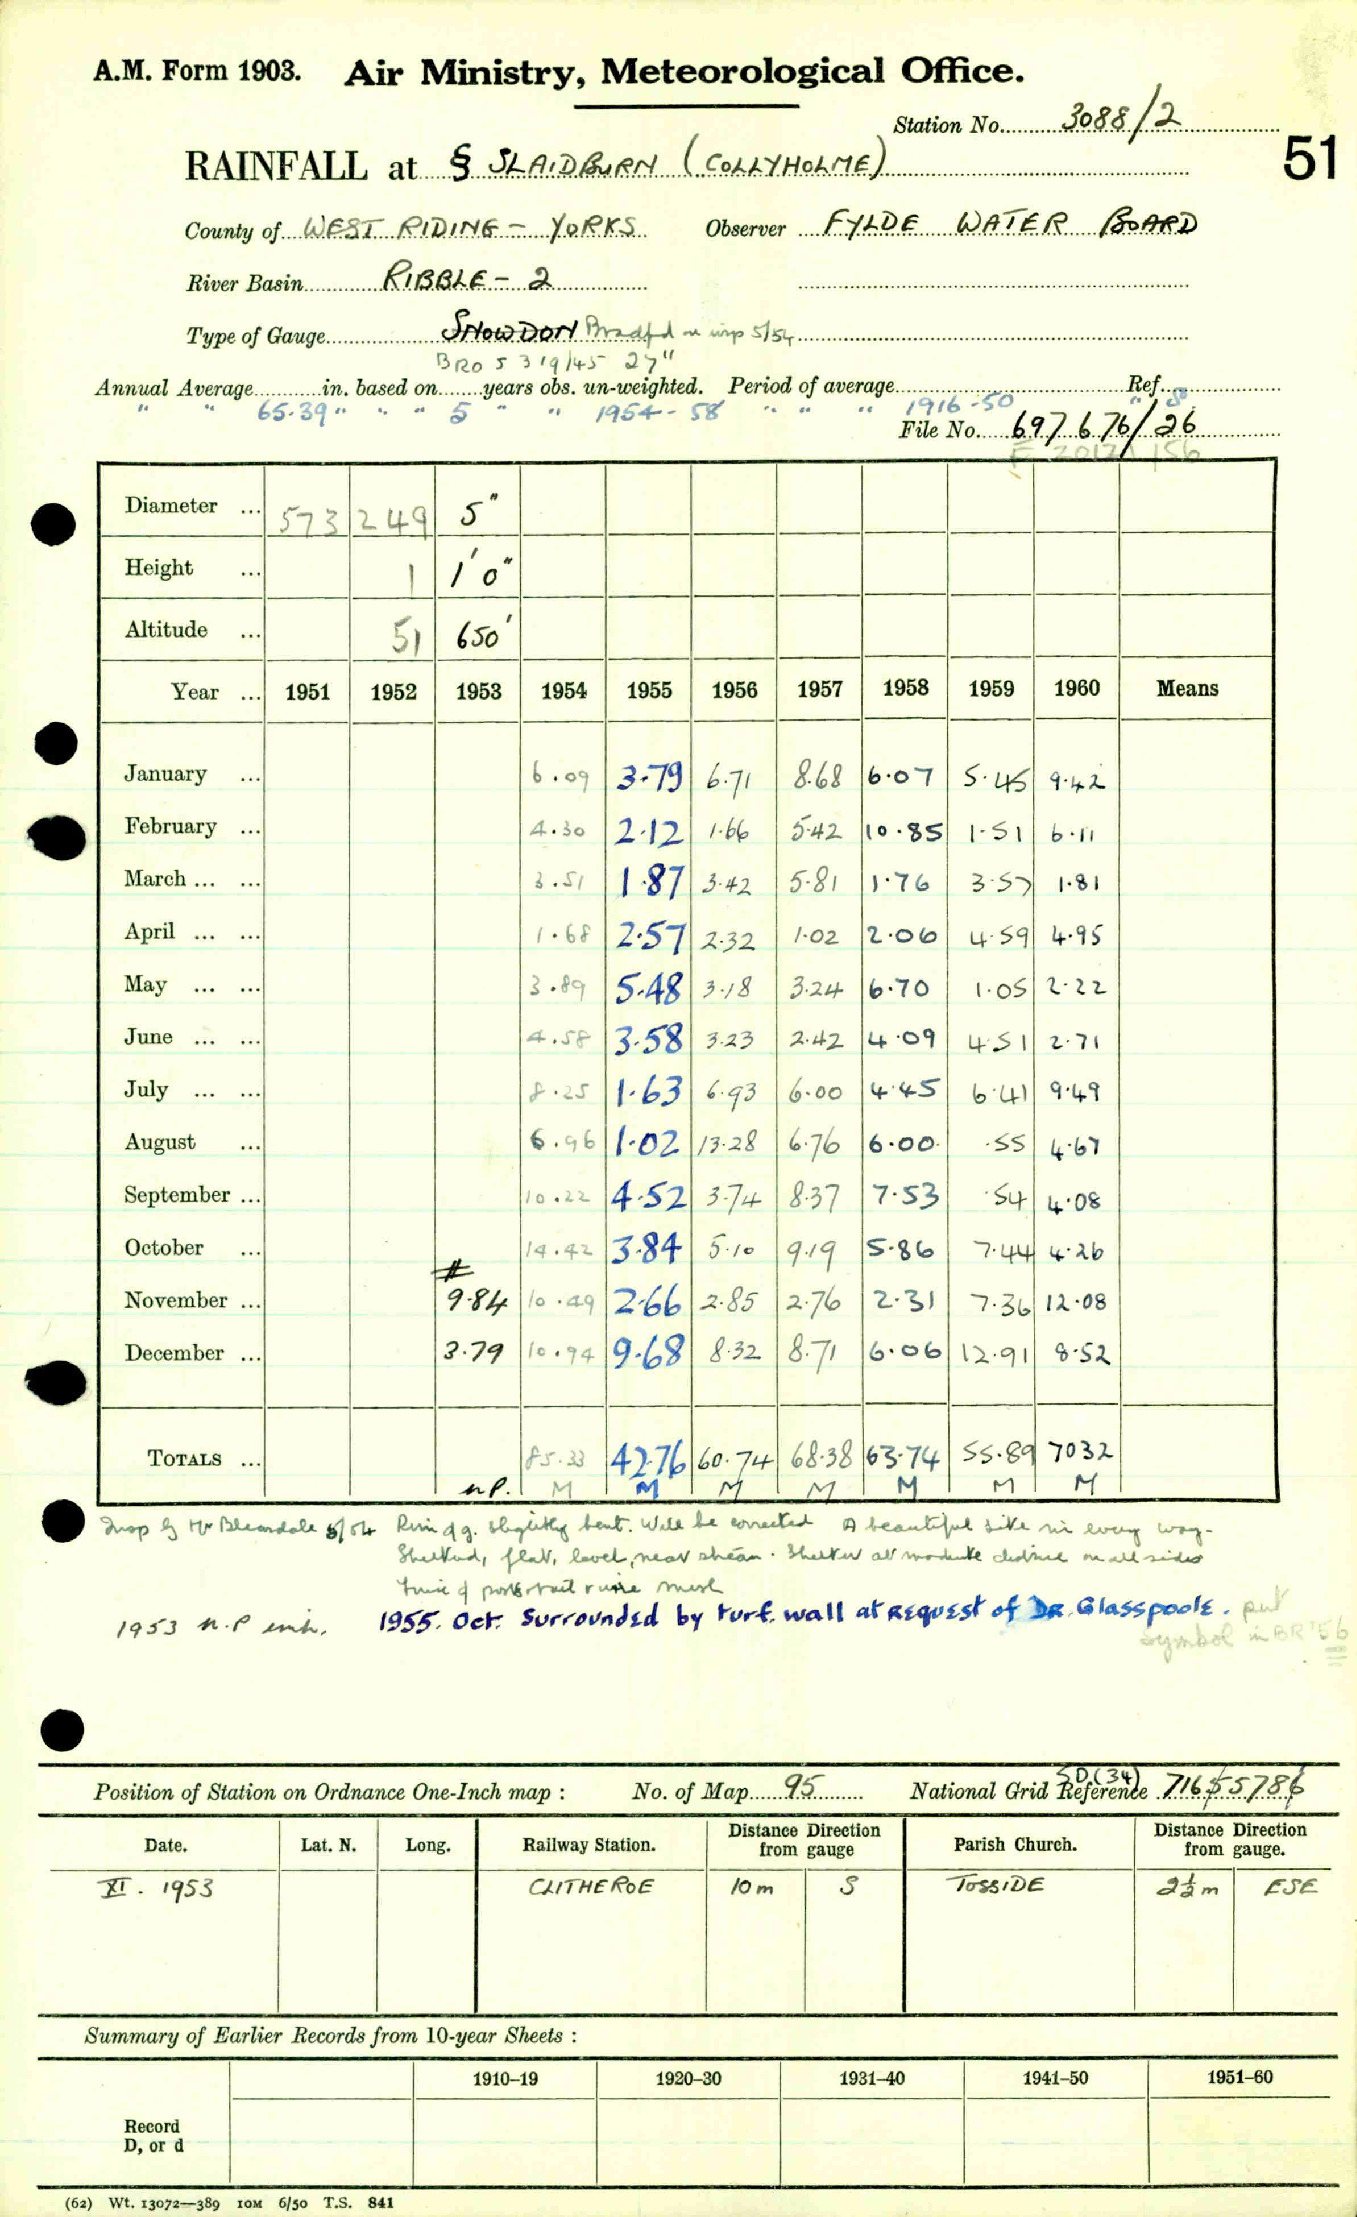 A.M. Form 1903. Air Ministry, Meteorological Office.
Station No. 3088/2
51
RAINFALL at § SLAIDBURN (COLLYHOLME)
County of WEST RIDING - YORKS Observer FYLDE WATER BOARD
River Basin RIBBLE - 2
Type of Gauge SNOWDON Bradfd on insp 5/54
BRO S 319/45 27"
Annual Average in. based on years obs. un-weighted. Period of average Ref.
" " 65.39 " " " 5 " " 1954 - 58 " " " 1916-50 "
File No. 697676/26
Diameter ... 573 249 5"
Height ... 1 1'0"
Altitude ... 51 650'
Year ... 1951 1952 1953 1954 1955 1956 1957 1958 1959 1960 Means
January ... 6.09 3.79 6.71 8.68 6.07 5.45 9.42
February ... 4.30 2.12 1.66 5.42 10.85 1.51 6.11
March ... ... 3.51 1.87 3.42 5.81 1.76 3.57 1.81
April ... ... 1.68 2.57 2.32 1.02 2.06 4.59 4.95
May ... ... 3.89 5.48 3.18 3.24 6.70 1.05 2.22
June ... ... 4.58 3.58 3.23 2.42 4.09 4.51 2.71
July ... ... 8.25 1.63 6.93 6.00 4.45 6.41 9.49
August ... 6.96 1.02 13.28 6.76 6.00 .55 4.67
September ... 10.22 4.52 3.74 8.37 7.53 .54 4.08
October ... 14.42 3.84 5.10 9.19 5.86 7.44 4.26
November ... # 9.84 10.49 2.66 2.85 2.76 2.31 7.36 12.08
December ... 3.79 10.94 9.68 8.32 8.71 6.06 12.91 8.52
TOTALS ... 85.33 42.76 60.74 68.38 63.74 55.89 70.32
n.P. M M M M M M M
Insp by Mr Bleasdale 5/54 Rim of g. slightly bent. Will be corrected A beautiful site in every way-
Sheltered, flat, level, near stream. Shelter at moderate distance on all sides
wire mesh
1953 n.P 1955. Oct. Surrounded by turf. wall at REQUEST of DR. Glasspoole. put
symbol in BR '56
Position of Station on Ordnance One-Inch map : No. of Map 95 National Grid Reference SD(34) 71655786
Date. Lat. N. Long. Railway Station. Distance Direction from gauge Parish Church. Distance Direction from gauge.
XI. 1953 CLITHEROE 10m S TOSSIDE 2½m ESE
Summary of Earlier Records from 10-year Sheets :
1910–19 1920–30 1931–40 1941–50 1951–60
Record
D, or d
(62) Wt. 13072—389 10M 6/50 T.S. 841